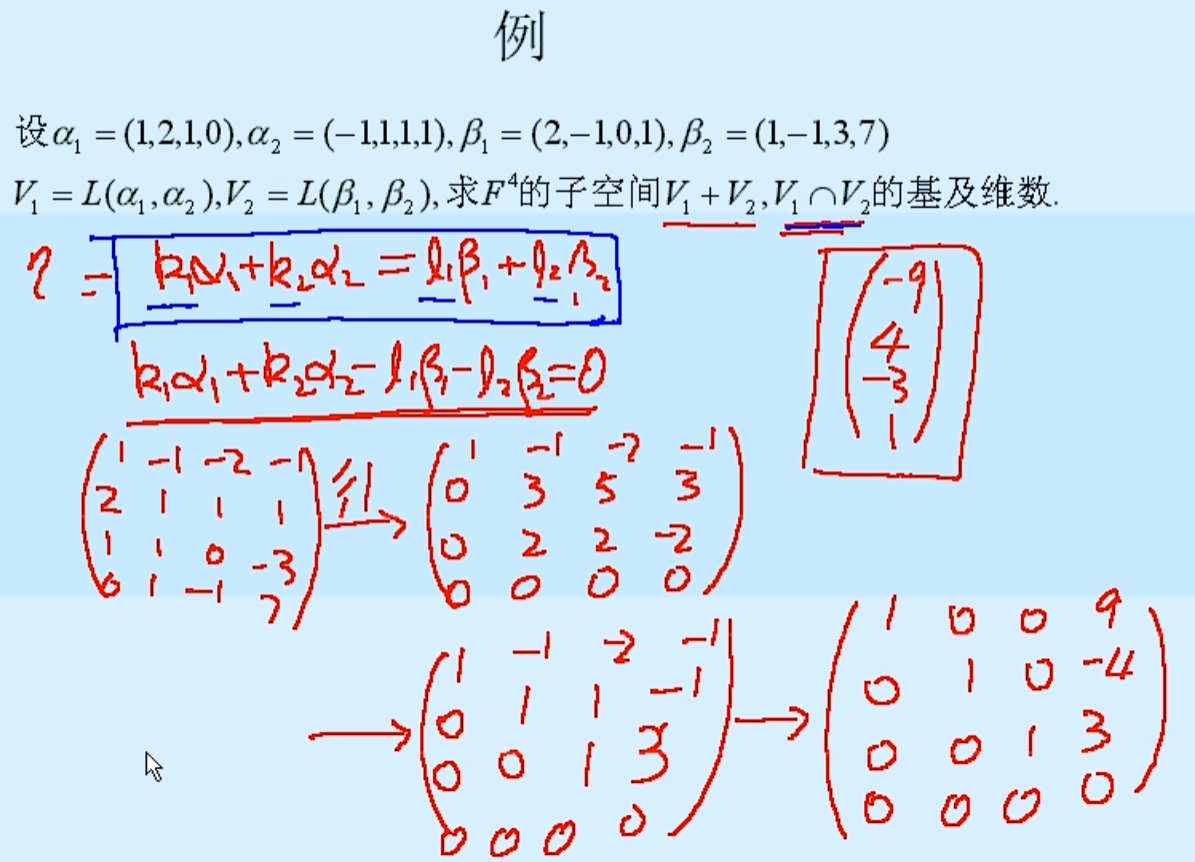 例
设α₁ = (1,2,1,0), α₂ = (−1,1,1,1), β₁ = (2,−1,0,1), β₂ = (1,−1,3,7)
V₁ = L(α₁,α₂), V₂ = L(β₁,β₂), 求F⁴的子空间V₁ + V₂, V₁ ∩ V₂的基及维数.
η = k₁α₁ + k₂α₂ = l₁β₁ + l₂β₂
k₁α₁ + k₂α₂ − l₁β₁ − l₂β₂ = 0
−9
4
−3
1
1 −1 −2 −1
2 1 1 1
1 1 0 −3
0 1 −1 7
→
1 −1 −2 −1
0 3 5 3
0 2 2 −2
0 0 0 0
→
1 −1 −2 −1
0 1 1 −1
0 0 1 3
0 0 0 0
→
1 0 0 9
0 1 0 −4
0 0 1 3
0 0 0 0